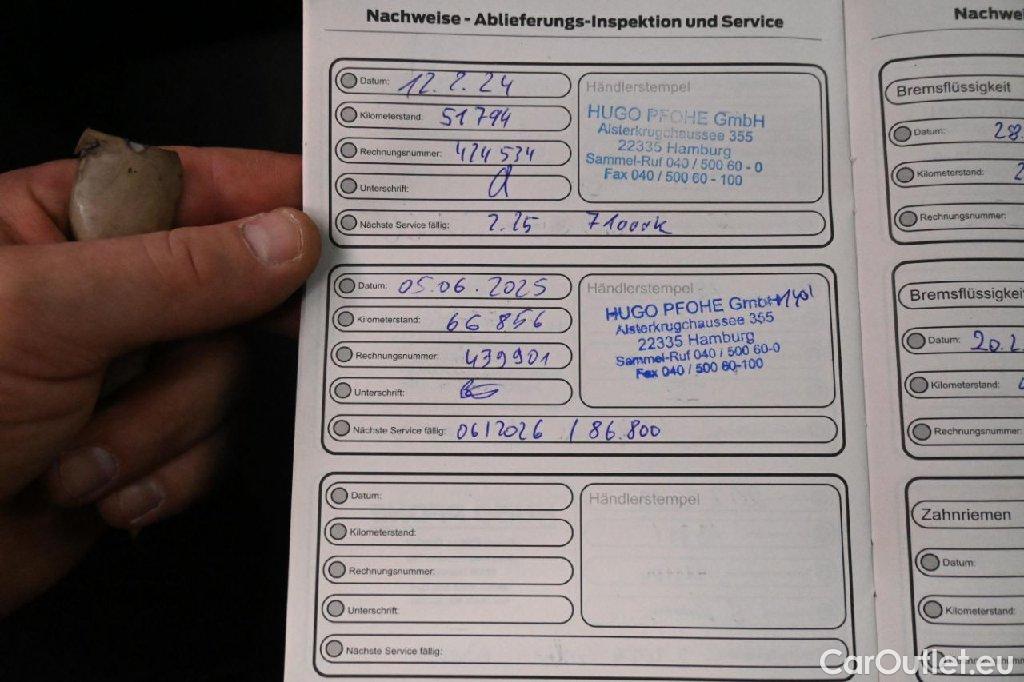 Nachweise - Ablieferungs-Inspektion und Service
Datum: 12.2.24
Kilometerstand: 51794
Rechnungsnummer: 424534
Unterschrift:
Nächste Service fällig: 2.25 71000k
Händlerstempel
HUGO PFOHE GmbH
Alsterkrugchaussee 355
22335 Hamburg
Sammel-Ruf 040 / 500 60 - 0
Fax 040 / 500 60 - 100
Datum: 05.06.2025
Kilometerstand: 66856
Rechnungsnummer: 439901
Unterschrift:
Nächste Service fällig: 06/2026 / 86.800
Händlerstempel
HUGO PFOHE GmbH
Alsterkrugchaussee 355
22335 Hamburg
Sammel-Ruf 040 / 500 60-0
Fax 040 / 500 60-100
Datum:
Kilometerstand:
Rechnungsnummer:
Unterschrift:
Nächste Service fällig:
Händlerstempel
Bremsflüssigkeit
Datum: 28
Kilometerstand:
Rechnungsnummer:
Bremsflüssigkei
Datum: 20.2
Kilometerstand:
Rechnungsnummer:
Zahnriemen
Datum:
Kilometerstand:
CarOutlet.eu